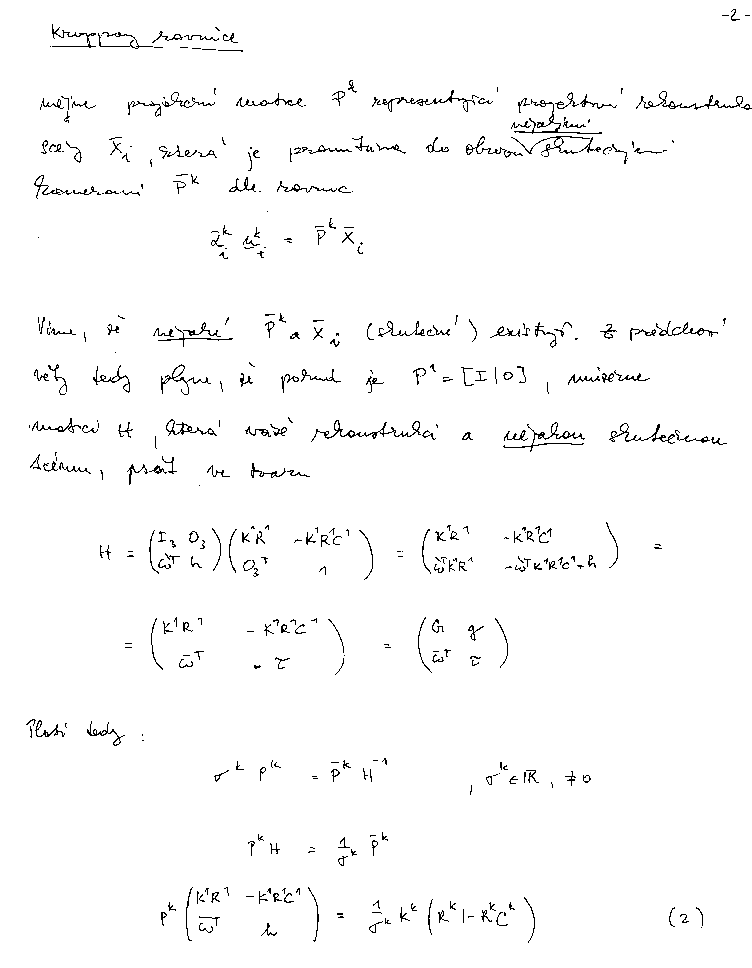 -2-
Kruppovy rovnice
mějme projekční matice P^k representující projektivní rekonstrukci
scény X̄_i, která je promítána do obrazů nějakými skutečnými
kamerami P̄^k dle rovnice
α_i^k u_i^k = P̄^k X̄_i
Víme, že nějaké P̄^k a X̄_i (skutečné) existují. Z předchozí
věty tedy plyne, že pokud je P^1 = [I|0], můžeme
matici H, která váže rekonstrukci a nějakou skutečnou
scénu, psát ve tvaru
H = (I_3 0_3 ; ω̄^T h)(K^1R^1 -K^1R^1C^1 ; 0_3^T 1) = (K^1R^1 -K^1R^1C^1 ; ω̃^TK^1R^1 -ω̃^TK^1R^1C^1+h) =
= (K^1R^1 -K^1R^1C^1 ; ω̄^T τ) = (G g ; ω̄^T τ)
Platí tedy :
σ^k P^k = P̄^k H^-1 , σ^k ∈ ℝ, ≠ 0
P^k H = 1/σ^k P̄^k
P^k (K^1R^1 -K^1R^1C^1 ; ω̄^T h) = 1/σ^k K^k (R^k | -R^kC^k) (2)